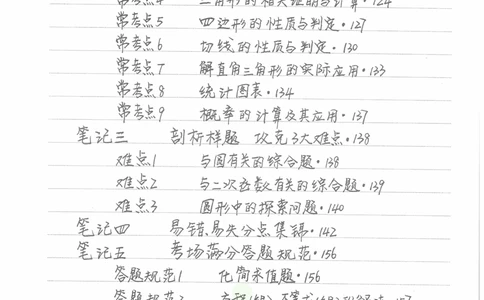 常考点4 三角形的相关证明与计算·124
常考点5 四边形的性质与判定·127
常考点6 切线的性质与判定·130
常考点7 解直角三角形的实际应用·133
常考点8 统计图表·134
常考点9 概率的计算及其应用·137
笔记三 剖析样题 攻克3大难点·138
难点1 与圆有关的综合题·138
难点2 与二次函数有关的综合题·139
难点3 图形中的探索问题·140
笔记四 易错、易失分点集锦·142
笔记五 考场满分答题规范·156
答题规范1 化简求值题·156
答题规范2